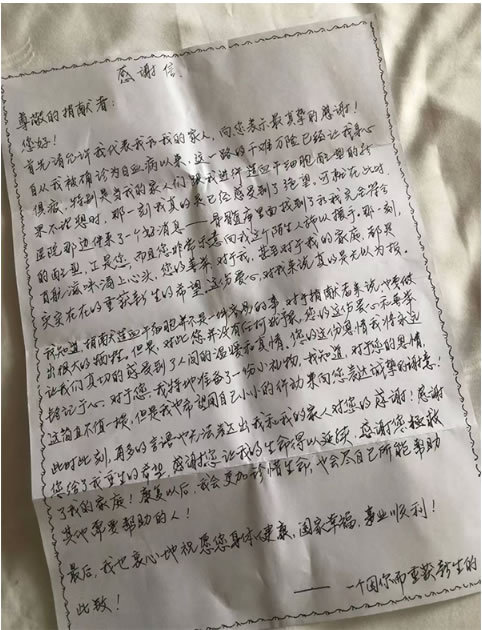 感谢信
尊敬的捐献者：
您好！
首先请允许我代表我和我的家人，向您表示最真挚的感谢！
自从我被确诊为白血病以来，这一路的千难万险已经让我身心
俱疲。特别是当我的家人们跟我进行造血干细胞配型的结
果不理想时，那一刻我真的是已经感受到了绝望，可就在此时，
医院那边传来了一个好消息——骨髓库里面找到了和我完全符合
的配型，正是您，而且您非常乐意向我这个陌生人施以援手。那一刻，
百般滋味涌上心头，您的善举，对于我，甚至对于我的家庭，都是
实实在在的重获新生的希望。这份爱心，对我来说真的是无以为报。
我知道，捐献造血干细胞并不是一件容易的事，对于捐献者来说也要做
出很大的牺牲。但是，对此您并没有任何犹豫，您的这份爱心和善举
让我们真切的感受到了人间的温暖和真情，您的这份恩情我将永远
铭记于心。对于您，我特地准备了一份小礼物，我知道，对于您的恩情，
这简直不值一提，但是我也希望用自己小小的行动来向您表达诚挚的谢意！
此时此刻，再多的言语也无法表达出我和我的家人对您的感谢！感谢
您给了我重生的希望，感谢您让我的生命得以延续，感谢您拯救
了我的家庭！康复以后，我会更加珍惜生命，也会尽自己所能帮助
其他需要帮助的人！
最后，我也衷心地祝愿您身体健康，阖家幸福，事业顺利！
此致！
——一个因你而重获新生的